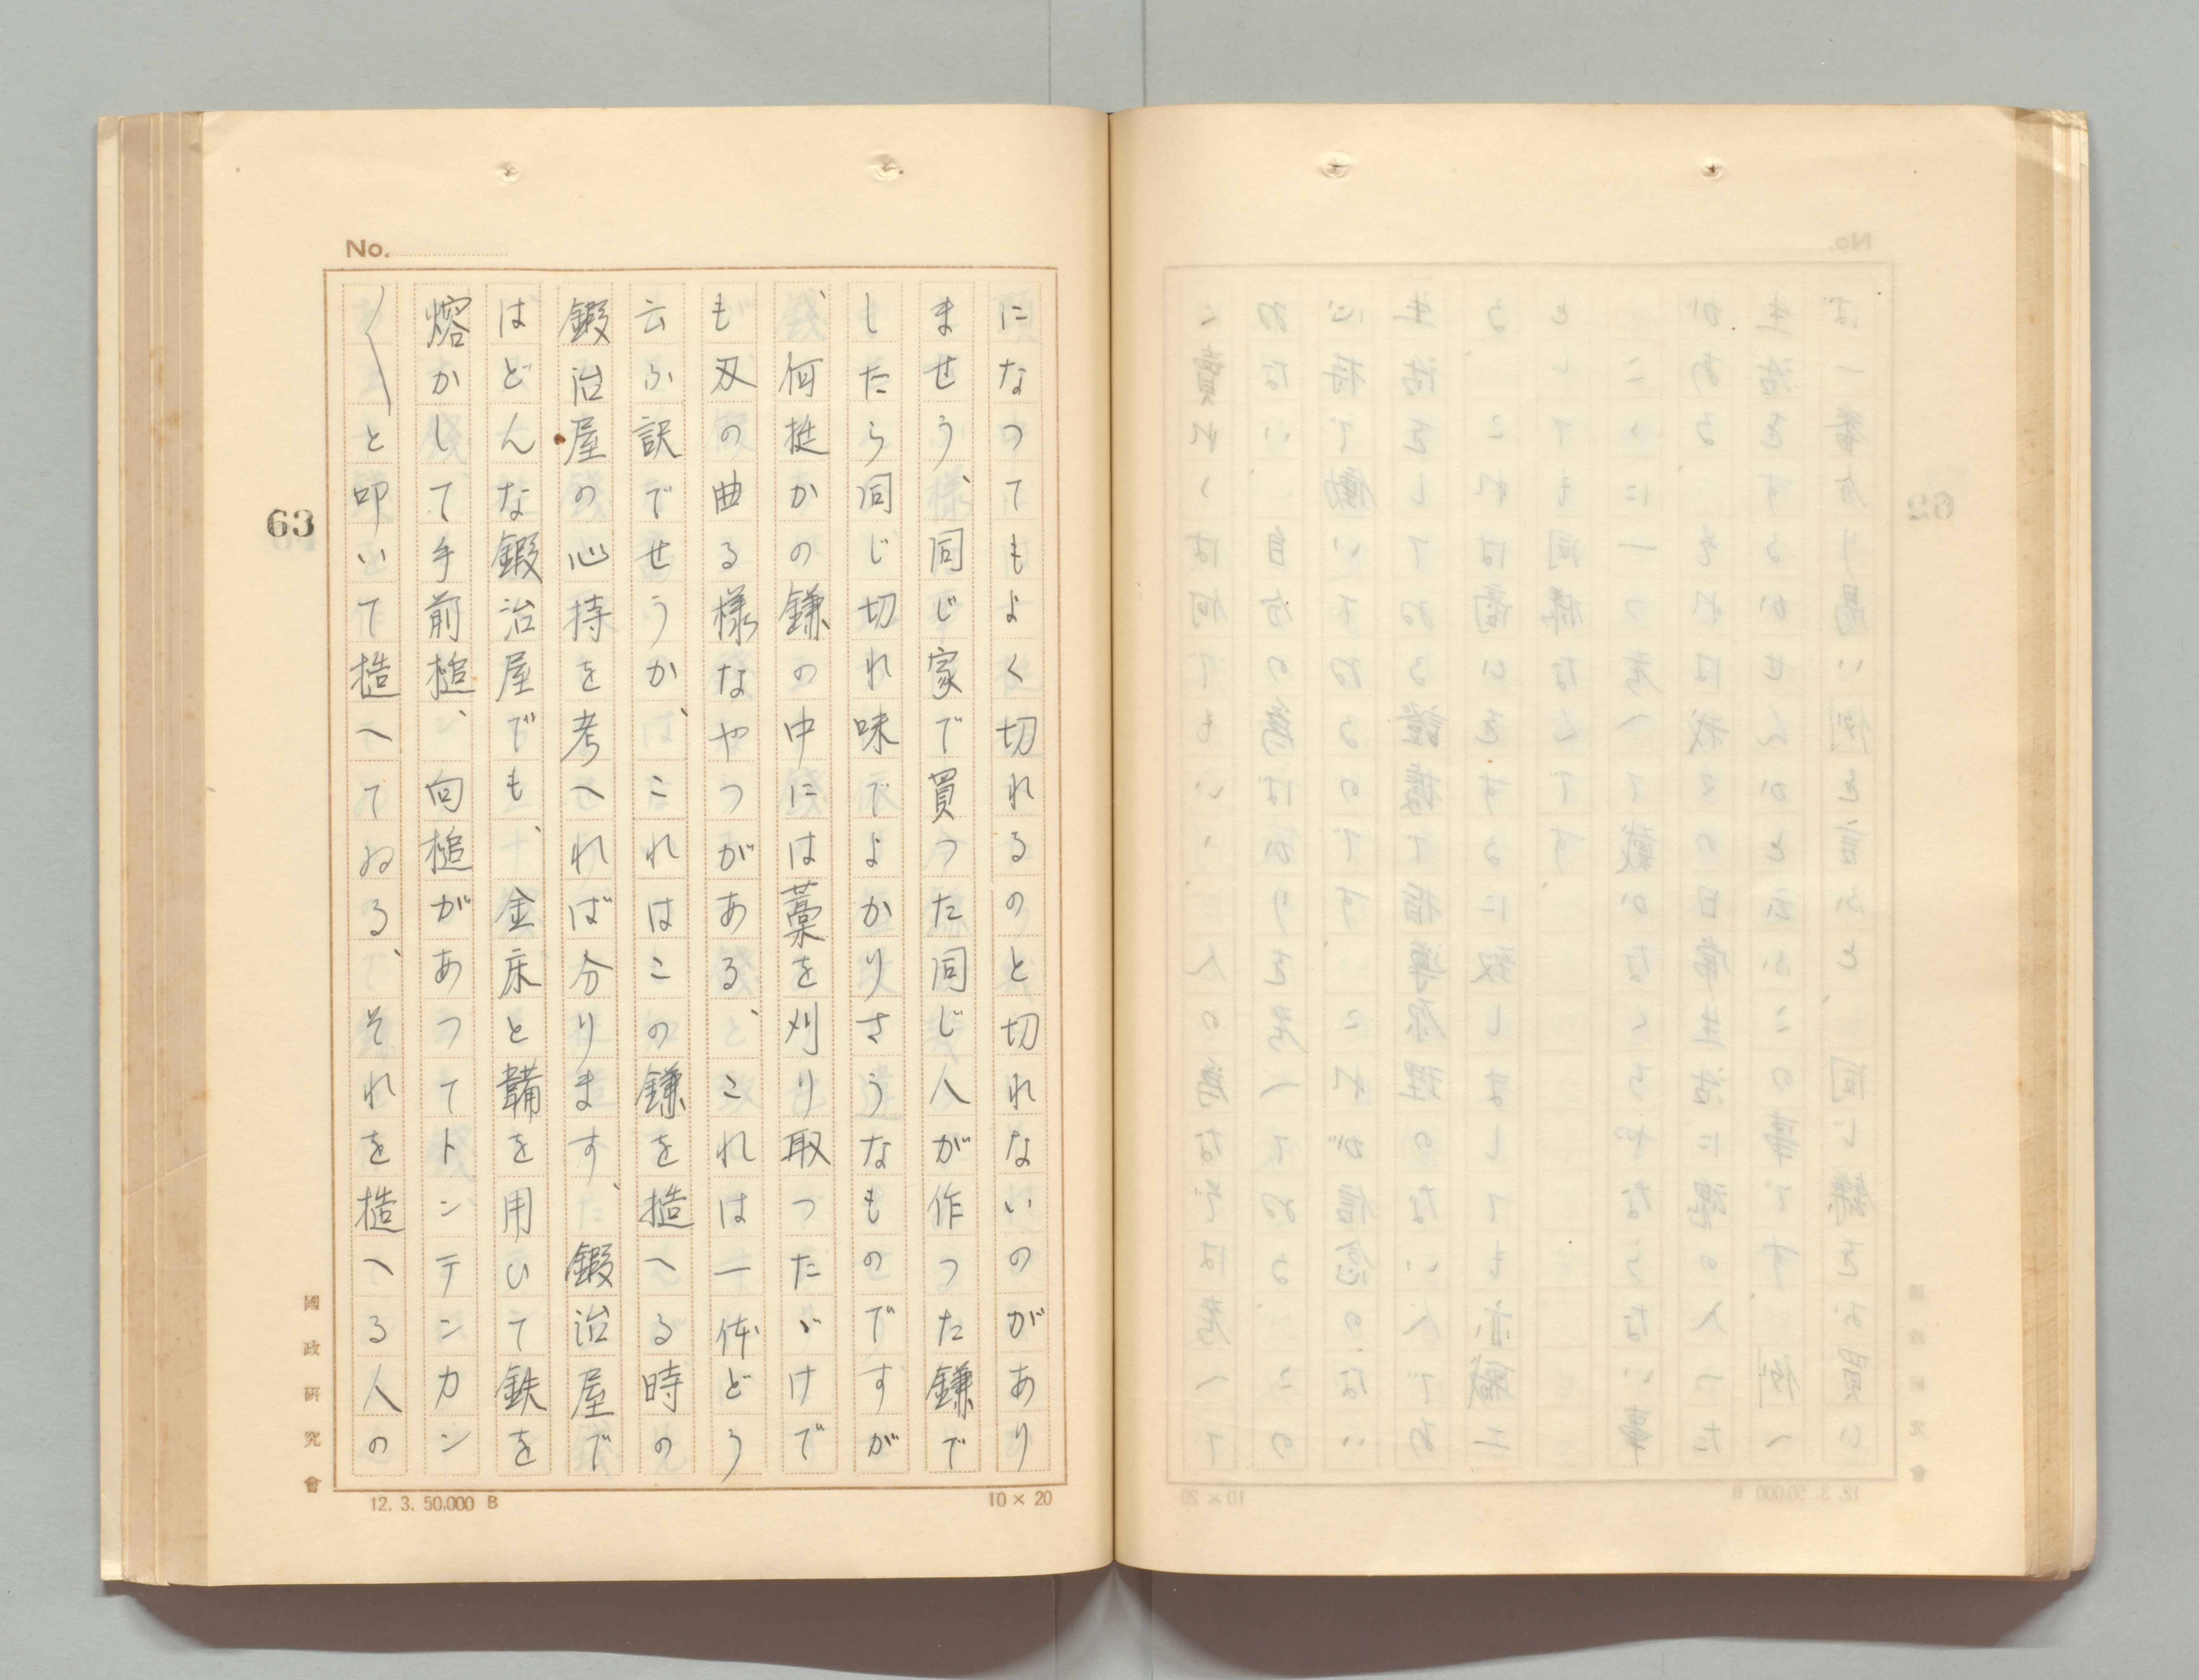 No.
になつてもよく切れるのと切れないのがあり
ませう、同じ家で買つた同じ人が作つた鎌で
したら同じ切れ味でよかりさうなものですが
、何挺かの鎌の中には藁を刈り取つたゞけで
も刄の曲る様なやつがある、これは一体どう
云ふ訳でせうか、これはこの鎌を造へる時の
鍛冶屋の心持を考へれば分ります、鍛治屋で
はどんな鍛治屋でも、金床と鞴を用ひて鉄を
熔かして手前槌、向槌があつてトンテンカン
〱と叩いて造へてゐる、それを造へる人の
63
國政研究會
12. 3. 50.000 B
10×20